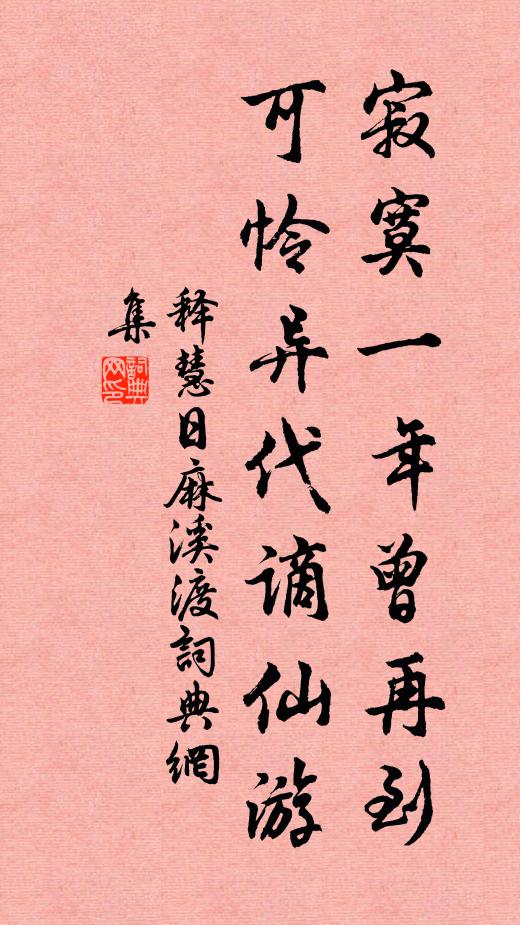 寂寞一年曾再到
可怜异代谪仙游
释慧日麻溪渡詞典網
集
詞典网印